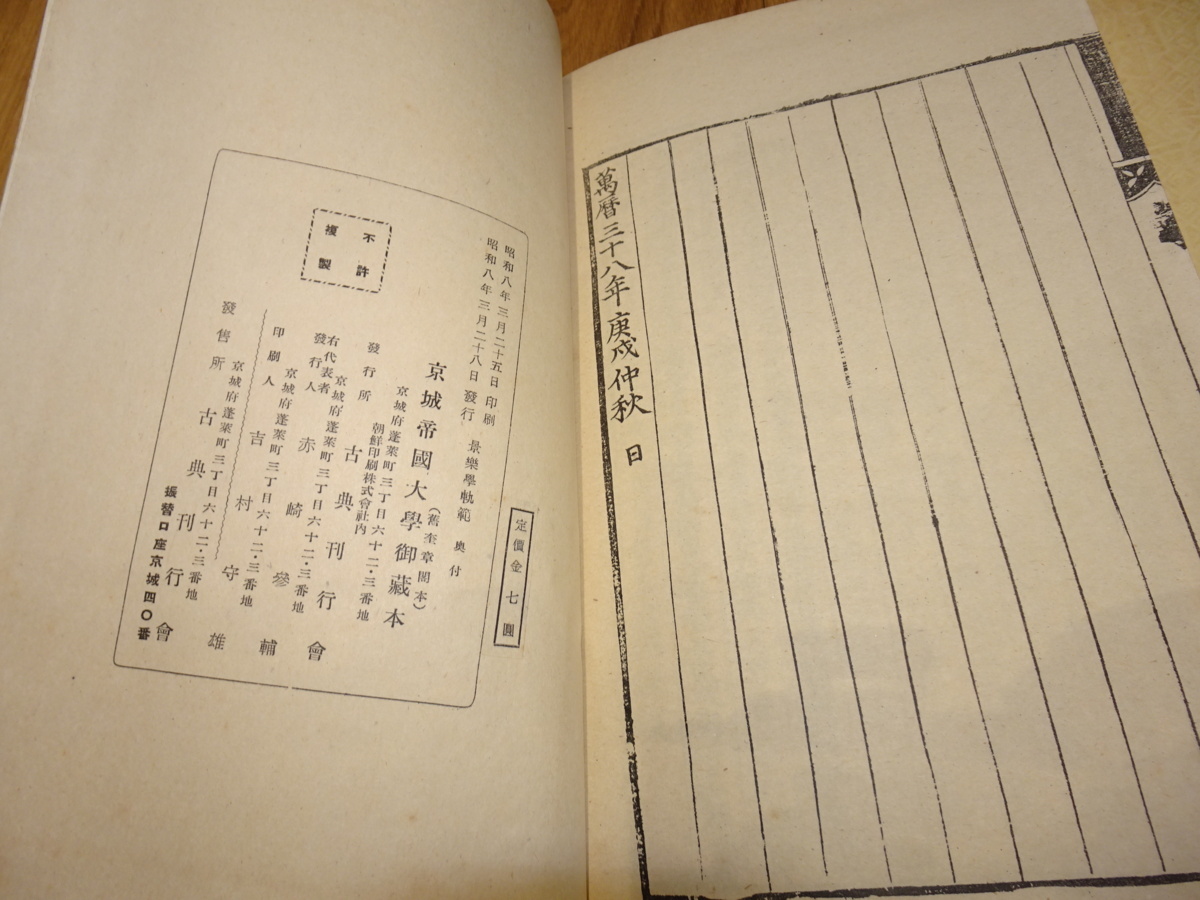 萬曆三十八年庚戌仲秋 日
定價金七圓
昭和八年三月二十五日印刷
昭和八年三月二十八日發行
景樂學軌範 奧付
京城帝國大學御藏本
(舊奎章閣本)
京城府蓬萊町三丁目六十二・三番地
朝鮮印刷株式會社內
發行所 古典刊行會
京城府蓬萊町三丁目六十二・三番地
右代表者
發行人 赤崎參輔
京城府蓬萊町三丁目六十二・三番地
印刷人 吉村守雄
京城府蓬萊町三丁目六十二・三番地
發售所 古典刊行會
振替口座京城四〇番
不許
複製